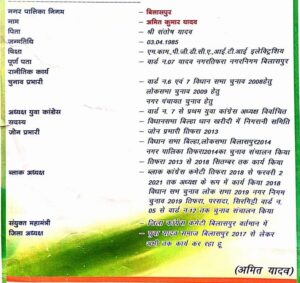 नगर पालिका निगम – बिलासपुर
नाम – अमित कुमार यादव
पिता – श्री संतोष यादव
जन्मतिथि – 03.04.1985
शिक्षा – एम.काम,पी.जी.डी.सी.ए,आई.टी.आई इलेक्ट्रिशियन
पूर्ण पता – वार्ड न.07 यादव नगरतिफरा नगरनिगम बिलासपुर
रानीतिक कार्य
चुनाव प्रभारी – वार्ड न.6 एवं 7 विधान सभा चुनाव 2008हेतु
लोकसभा चुनाव 2009 हेतु
नगर पंचायत चुनाव हेतु
अध्यक्ष युवा कांग्रेस – वार्ड न. 7 से प्रथम युवा कांग्रेस अध्यक्ष निर्वाचित
सदस्य – विधानसभा बिल्हा धान खरीदी में निगरानी समिति
जोन प्रभारी – जोन प्रभारी तिफरा 2013
विधान सभा बिल्हा,लोकसभा बिलासपुर2014
नगर पालिका तिफरा2014का चुनाव संचालन किया
तिफरा 2013 से 2018 सितम्बर तक कार्य किया
ब्लाक अध्यक्ष – ब्लाक कांग्रेस कमेटी तिफरा 2018 से फरवरी 2
2021 तक अध्यक्ष के रूप में कार्य किया 2018
विधान सभ चुनाव लोक सभा 2019 नगर निगम
चुनाव 2019 तिफरा, परसदा, सिरगिट्टी वार्ड न.
05 से वार्ड न.12 तक चुनाव संचालन किया
संयुक्त महामंत्री – जिला कांग्रेस कमेटी बिलासपुर वर्तमान में
जिला अध्यक्ष – युवा यादव समाज बिलासपुर 2017 से लेकर
अभी तक कार्य कर रहा हू
(अमित यादव)